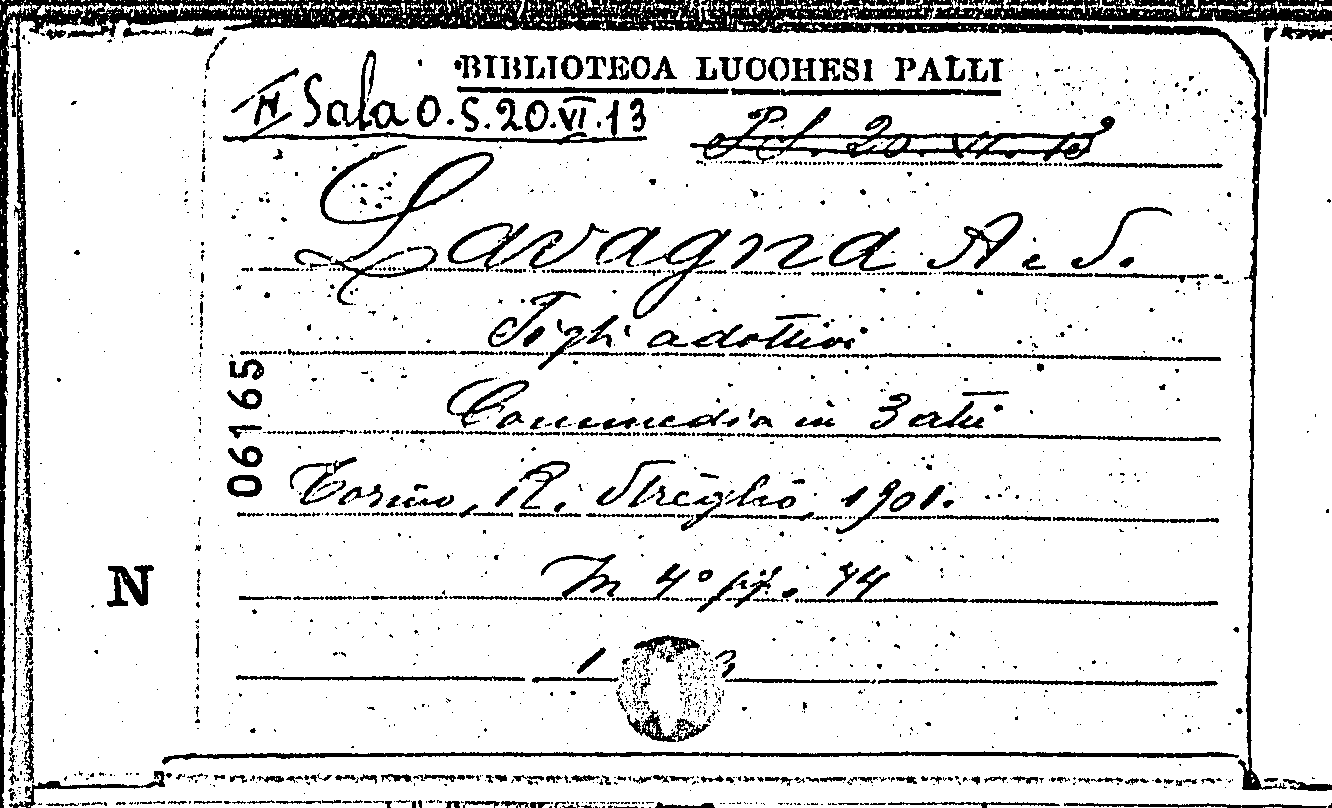 BIBLIOTECA LUCCHESI PALLI
N Sala O.S.20.VI.13
20. VI. 13
Lavagna A. e S.
Figli adottivi
Commedia in 3 atti
Torino, R. Streglio, 1901.
In 4° pp. 74
06165
N